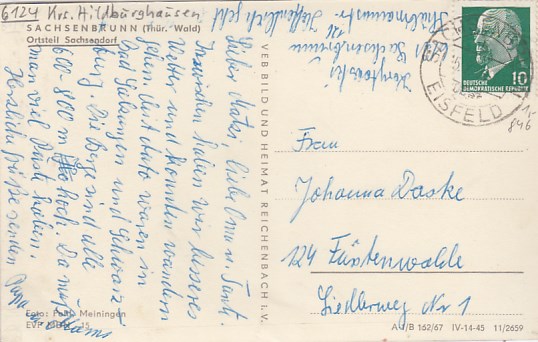 6124 Krs. Hildburghausen
SACHSENBRUNN (Thür. Wald)
Ortsteil Sachsendorf
Liebe Mutti, liebe Oma u. Tanti.
Inzwischen haben wir besseres
Wetter und konnten wandern
gehen. Mit Auto waren in
Bad Gabungen und Schwarz
burg. Die Berge sind alle
600-800 m hoch. Da muß
man viel Puste haben.
Herzliche Grüße senden
Papa
Foto: Meiningen
EVP MDN
VEB BILD UND HEIMAT REICHENBACH i. V.
Sachsenbrunn
Thälmannstr.
Hoffentlich geht
DEUTSCHE
DEMOKRATISCHE REPUBLIK
10
EISFELD
846
Frau
Johanna Daske
124 Fürstenwalde
Siedlerweg Nr 1
A 1/B 162/67 IV-14-45 11/2659